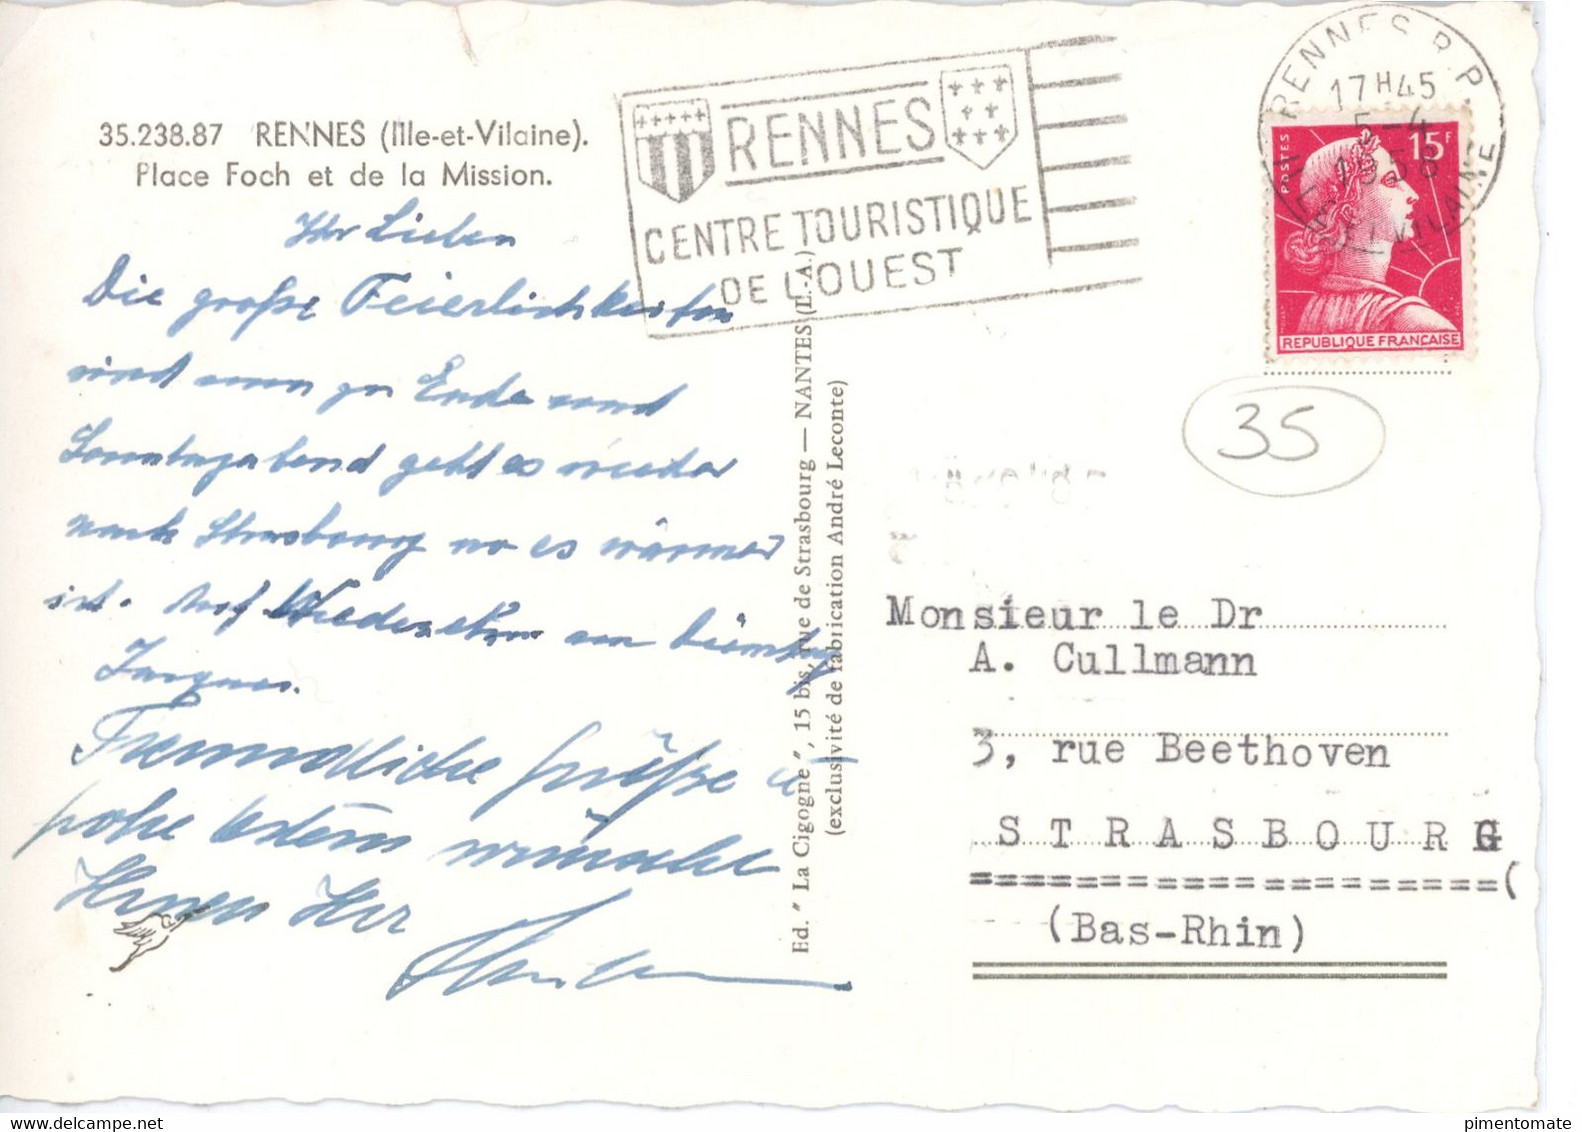 35.238.87 RENNES (Ille-et-Vilaine).
Place Foch et de la Mission.
Ihr Lieben
Die große Feierlichkeiten
sind nun zu Ende und
Sonntagabend geht es wieder
nach Strasbourg wo es wärmer
ist. Auf Wiedersehn am Dienstag
Jacques.
Freundliche Grüße u
frohe Ostern wünscht
Ihnen Ihr
RENNES
CENTRE TOURISTIQUE
DE L'OUEST
RENNES R.P.
17 H 45
5-4
1958
ILLE-ET-VILAINE
POSTES
15F
REPUBLIQUE FRANÇAISE
35
Ed. "La Cigogne", 15 bis, rue de Strasbourg — NANTES (L.-A.)
(exclusivité de fabrication André Leconte)
Monsieur le Dr
A. Cullmann
3, rue Beethoven
STRASBOURG
====================(
(Bas-Rhin)
pimentomate